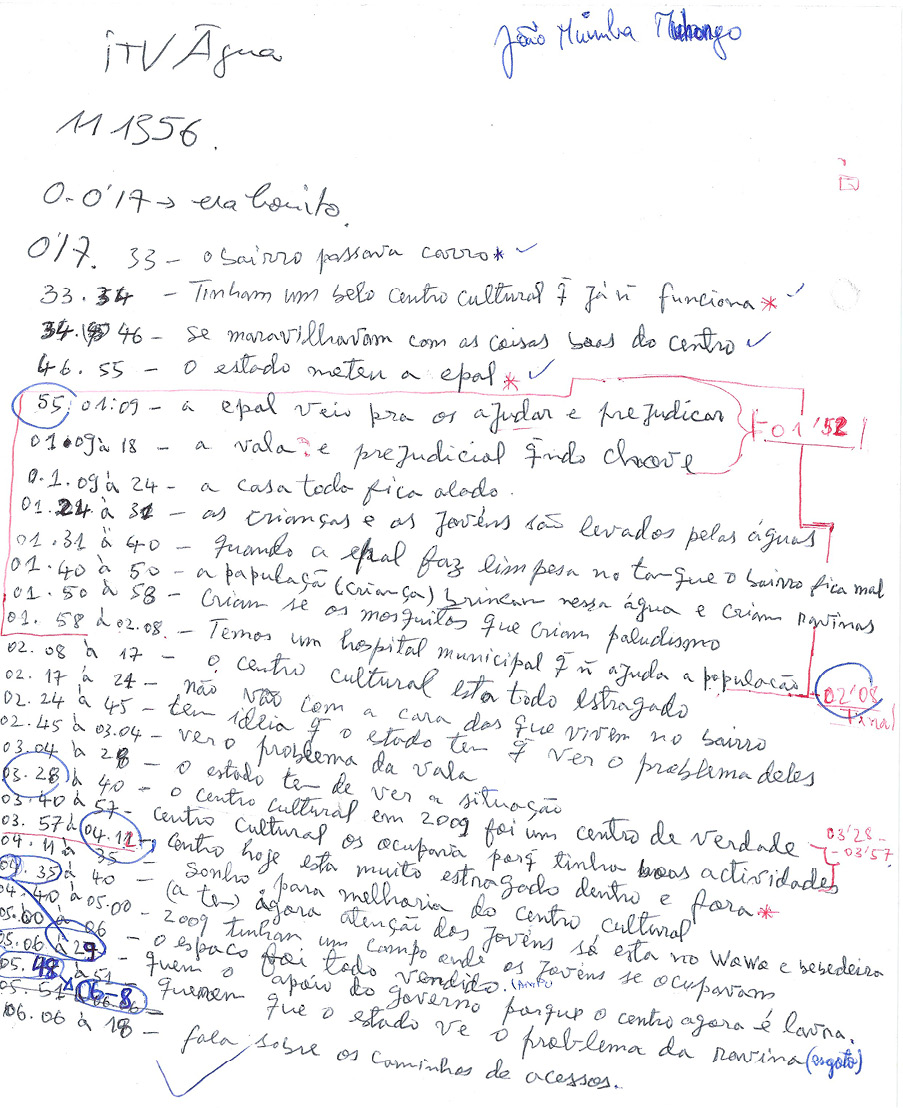 iTV Água
João Muimba
11 1356.
0-0'17 → era bonito.
0'17. 33 - o bairro passava carro * ✓
33.34 - Tinham um belo centro cultural q̃ já ñ funciona * ✓
46 - se maravilhavam com as coisas boas do centro ✓
46.55 - o estado meteu a epal * ✓
55. 01:09 - a epal veio pra os ajudar e prejudicar
01.09 à 18 - a vala é prejudicial q̃ndo choove
01'52
0.1.09 à 24 - a casa toda fica alado.
01.24 à 31 - as crianças e os Jovéns são levados pelas águas
01.31 à 40 - quando a epal faz limpesa no tanque o bairro fica mal
01.40 à 50 - a papulação (criança) brincam nessa água e criam ravinas
01.50 à 58 - criam se os mosquitos que criam paludismo
01.58 à 02.08. - Temos um hospital municipal q̃ ñ ajuda a população
02'08 Final
02.08 à 17 - o centro cultural esta todo estragado
02.17 à 24 - não vão com a cara dos que vivem no bairro
02.24 à 45 - tem ideia q̃ o estado tem q̃ ver o problema deles
02.45 à 03.04 - ver o problema da vala
03.04 à 28 - o estado tem de ver a situação
03.28 à 40 - o centro cultural em 2009 foi um centro de verdade
03.40 à 57 - centro cultural os ocupava porq̃ tinha boas actividades
03'28 - - 03'57
03.57 à 04.11 - centro hoje esta muito estragado dentro e fora *
04.11 à 35 - sonho para melhoria do centro cultural
04.35 à 40 - (a te) ágora atenção dos jovéns só esta no Wawa e bebedeira
04.40 à 05.00 - 2009 tinham um campo onde os Jovéns se ocupavam
05.00 à 06 - o espaço foi todo vendido. (campo
05.06 à 29 - quem o apoio do governo porque o centro agora é lavra.
05.48 à 51 - querem que o estado ve o problema da ravina (esgoto)
05.51 06-8
06.06 à 18 - fala sobre os caminhos de acessos.